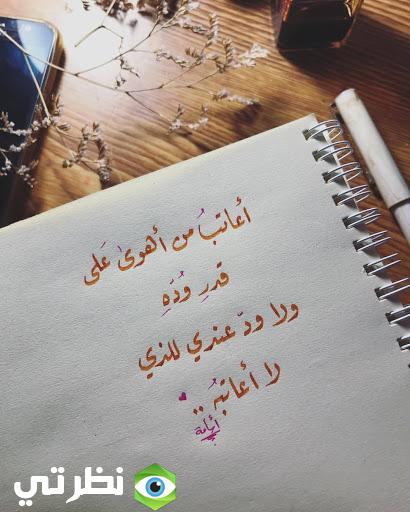 أعاتبُ من أهوىٰ عَلى
قدرِ وُدّهِ
ولا ودّ عندي للذي
لا أعاتبهُ ..
نظرتي